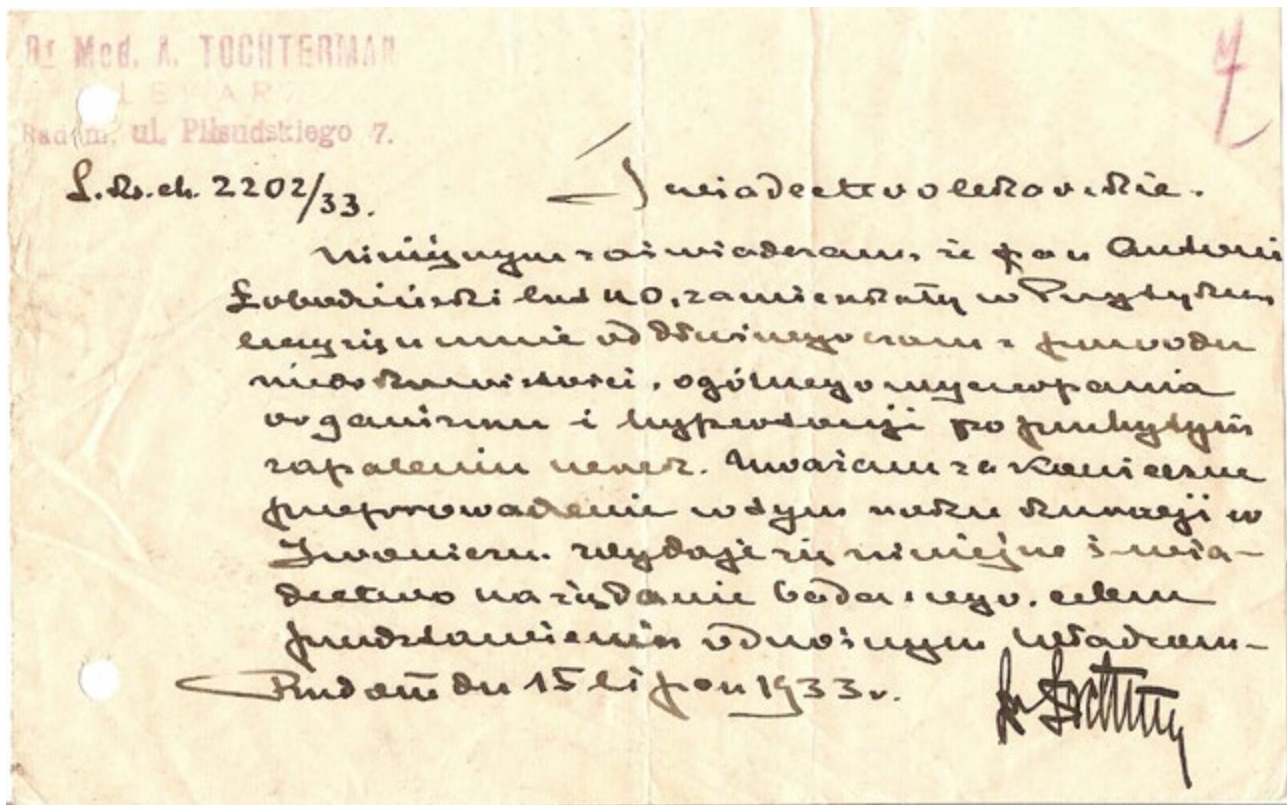 Dr Med. A. TOCHTERMAN
LEKARZ
Radom, ul. Piłsudskiego 7.
L. ks. ch. 2202/33.
Świadectwo lekarskie.
Niniejszym zaświadczam, że pan Antoni
lat 40, zamieszkały w Przytyku
leczy się u mnie od dłuższego czasu z powodu
niedokrwistości, ogólnego wyczerpania
organizmu i hypertonji po przebytym
zapaleniu nerek. Uważam za konieczne
przeprowadzenie w tym roku kuracji w
Iwoniczu. Wydaje się niniejsze świa-
dectwo na żądanie badanego, celem
przedstawienia odnośnym władzom.
Radom dn 15 lipca 1933 r.